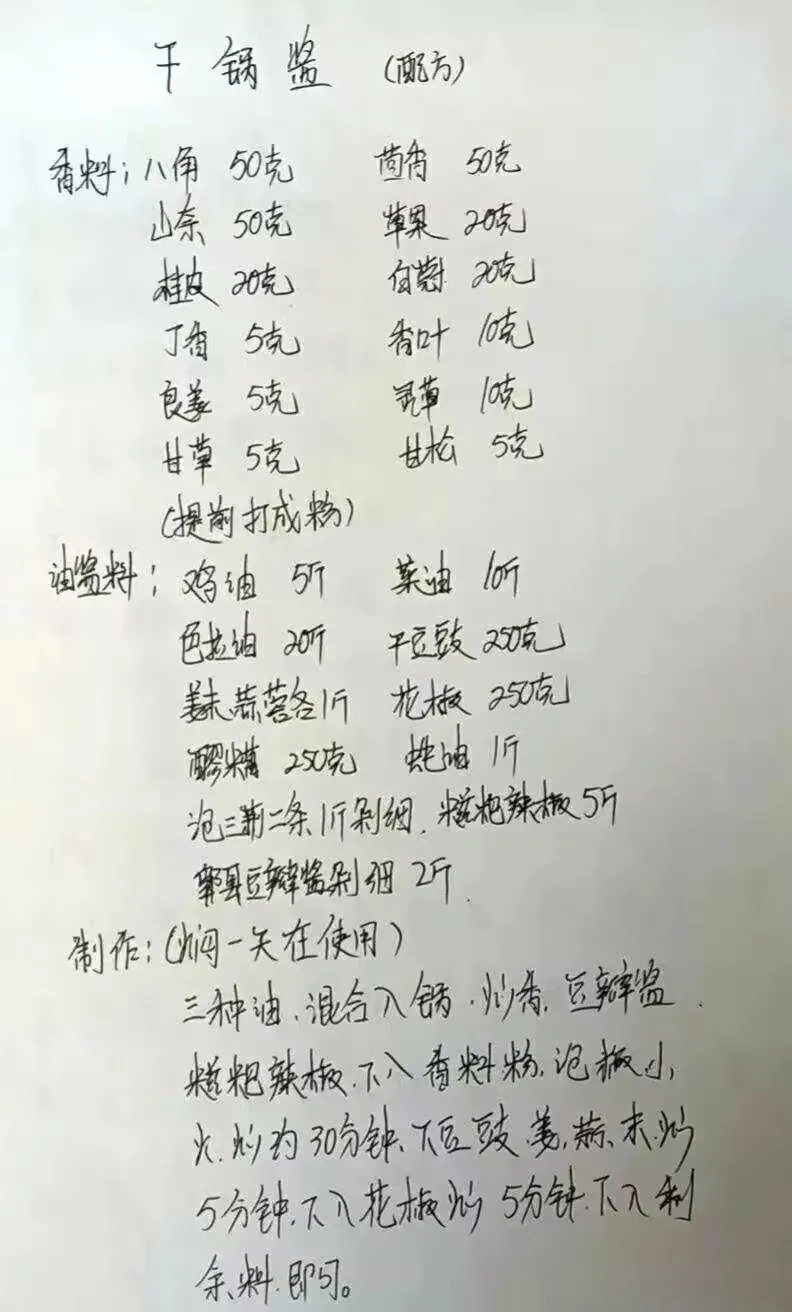 干锅酱 (配方)
香料: 八角 50克 茴香 50克
山奈 50克 草果 20克
桂皮 20克 白蔻 20克
丁香 5克 香叶 10克
良姜 5克 灵草 10克
甘草 5克 甘松 5克
(提前打成粉)
油酱料: 鸡油 5斤 菜油 10斤
色拉油 20斤 干豆豉 250克
姜末.蒜蓉各1斤 花椒 250克
醪糟 250克 蚝油 1斤
泡二荆条1斤剁细. 糍粑辣椒5斤
郫县豆瓣酱剁细 2斤.
制作: (焖一天在使用)
三种油.混合入锅.炒香.豆瓣酱.
糍粑辣椒.下入香料粉.泡椒.小
火.炒约30分钟.下豆豉.姜.蒜.末.炒
5分钟.下入花椒炒5分钟.下入剩
余料.即可。